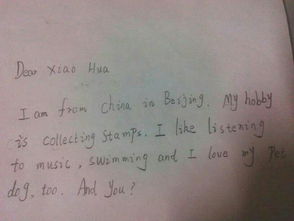 Dear Xiao Hua
I am from China in Beijing. My hobby
is collecting stamps. I like listening
to music, swimming and I love my pet
dog, too. And you?